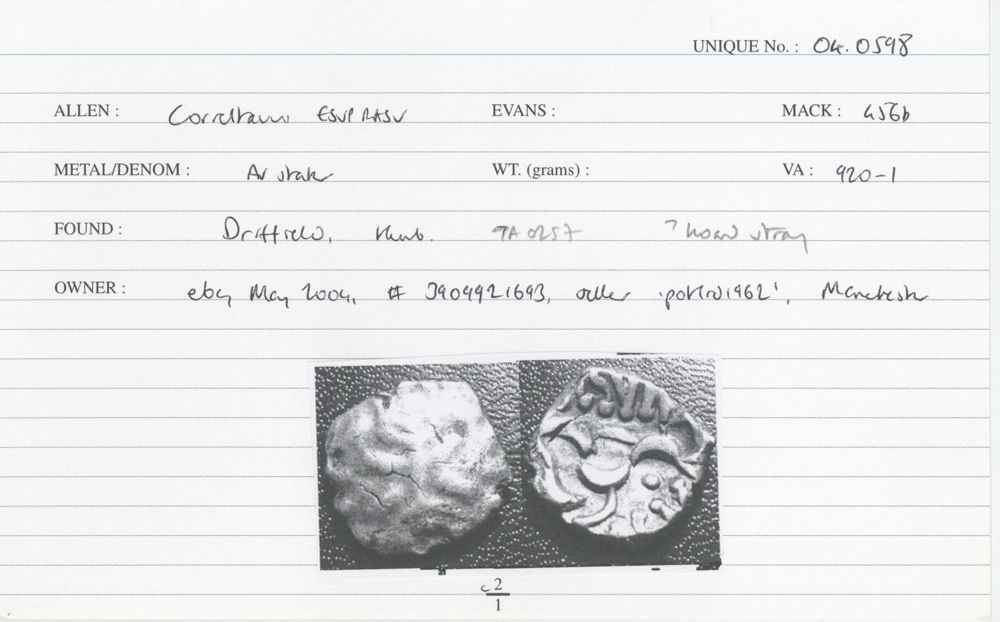 UNIQUE No. : 04.0598
ALLEN : Corieltauvi ESVP RASV EVANS : MACK : 456b
METAL/DENOM : AV stater WT. (grams) : VA : 920-1
FOUND : Driffield, Humb. TA 0257 ? hoard stray
OWNER : ebay May 2004, # 3904921693, seller, Manchester
c 2
1